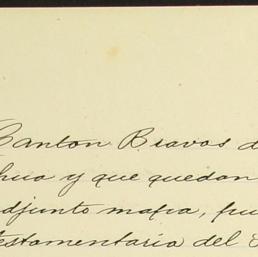 Canton Bravos d
hua y que quedan
djunto mapa, fu
estamentaria del S